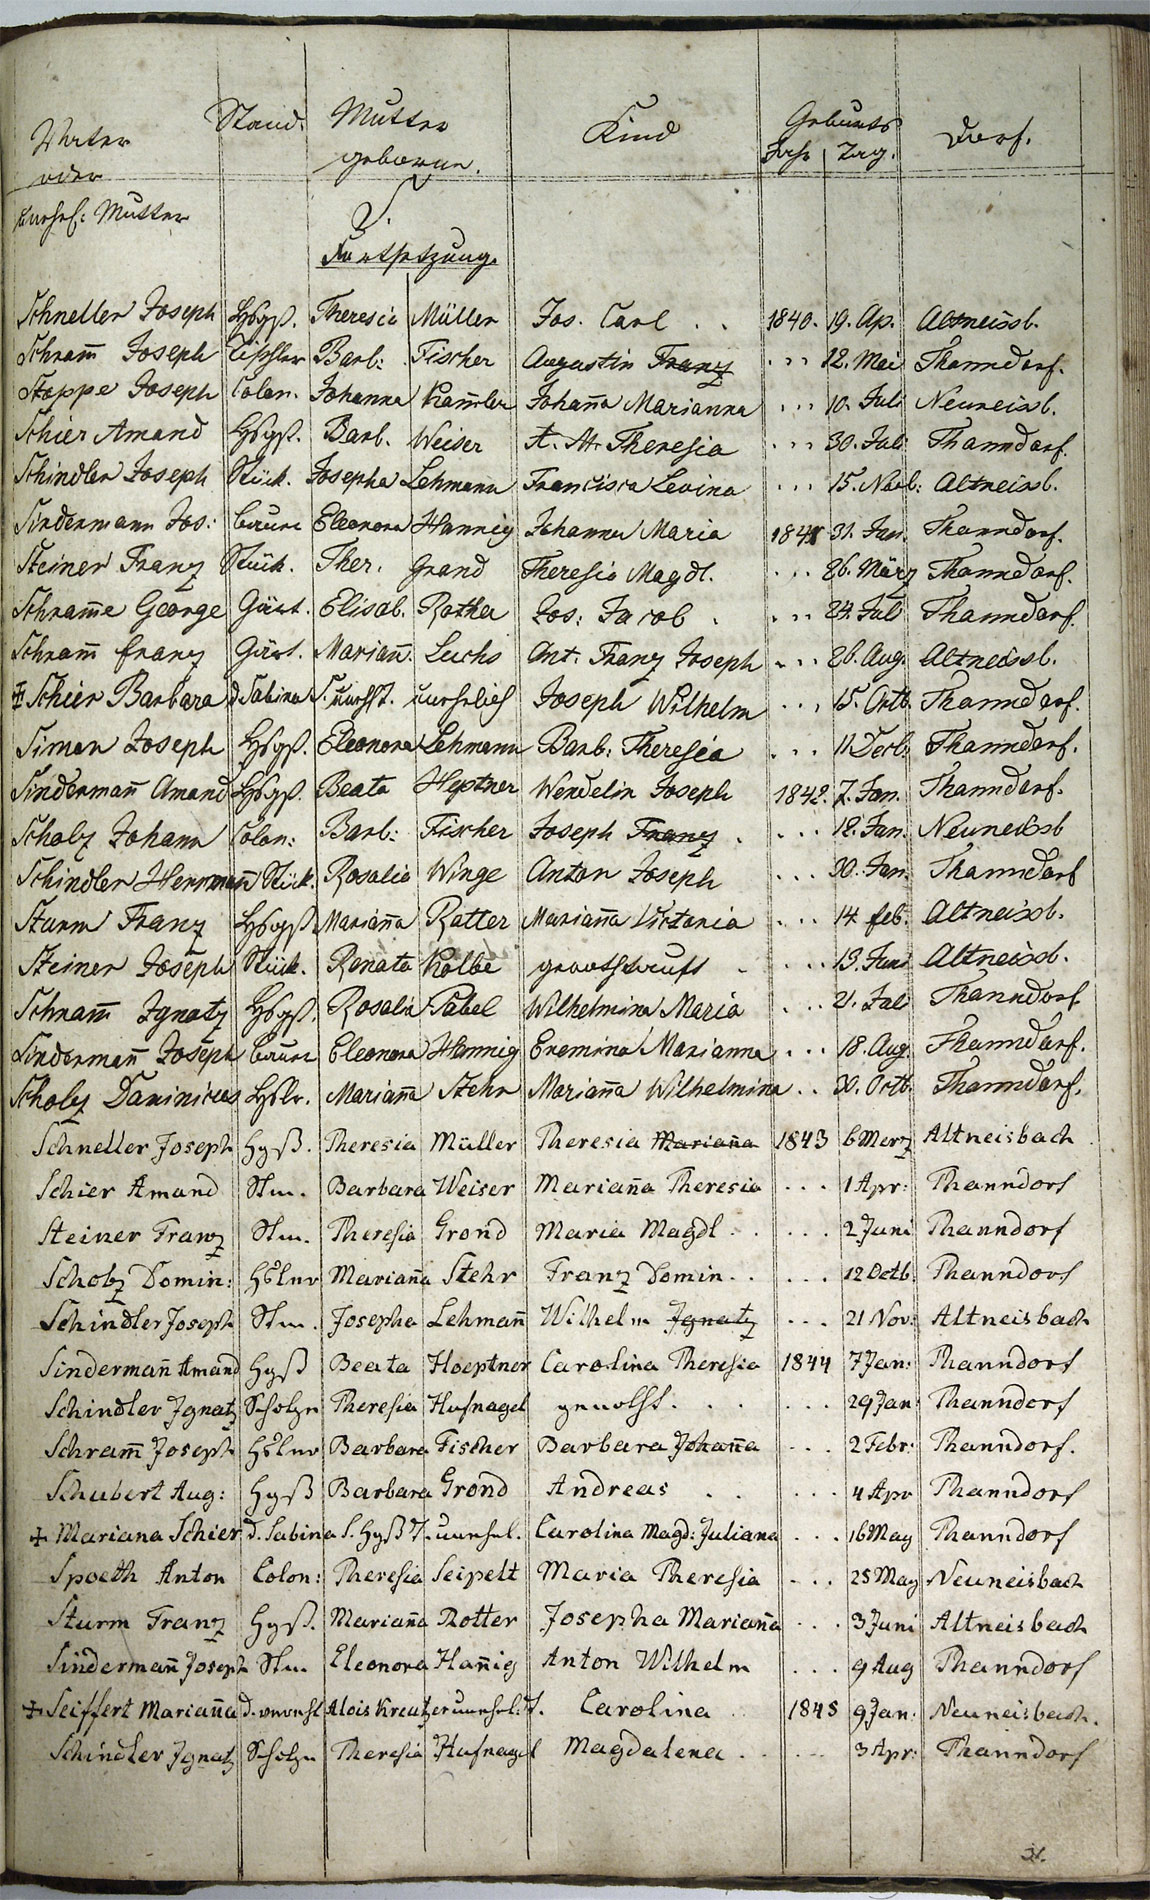 Vater Stand. Mutter Kind Geburts Dorf.
oder geborne. Jahr Tag.
unehel: Mutter
S.
Fortsetzung.
Schneller Joseph Hsgß. Theresia Müller Jos. Carl . . 1840. 19. Ap. Altneissb.
Schram̅ Joseph Tischler Barb: Fischer Augustin Franz . . . 12. Mai Thanndorf.
Stoppe Joseph Colon. Johanna Kam̅ler Johan̅a Marianna . . . 10. Juli Neuneissb.
Schier Amand Hsgß. Barb. Weiser A. M. Theresia . . . 30. Juli Thanndorf.
Schindler Joseph Stück. Josepha Lehmann Francisca Levina . . . 15. Novb: Altneissb.
Sindermann Jos: Bauer Eleonora Hannig Johanna Maria 1841 31. Jan. Thanndorf.
Steiner Franz Stück. Ther. Grand Theresia Magdl. . . . 26. März Thanndorf.
Schram̅e George Gärt. Elisab. Rother Jos: Jacob . . . . 24. Juli Thanndorf.
Schram̅ Franz Gärt. Marian̅ Luchs Ant. Franz Joseph . . . 26. Aug. Altneissb.
‡ Schier Barbara d Sabina S. unehelich Joseph Wilhelm . . . 15. Octb. Thanndorf.
Simon Joseph Hsgß. Eleonora Lehmann Barb: Theresia . . . 11 Decb. Thanndorf.
Sinderman̅ Amand Hsgß. Beata Heptner Wendelin Joseph 1842. 7. Jan. Thanndorf.
Scholz Johann Colon: Barb: Fischer Joseph Franz . . . . 18. Jan. Neuneissb
Schindler Herrman̅ Stück. Rosalia Winge Anton Joseph . . . 30. Jan. Thanndorf
Sturm Franz Hsgß. Marian̅a Rotter Marian̅a Victoria . . . 14 feb. Altneissb.
Steiner Joseph Stück. Renata Kolbe . . . . 13. Juni Altneissb.
Schram̅ Ignatz Hsgß. Rosalia Pabel Wilhelmina Maria . . . 21. Juli Thanndorf
Sinderman̅ Joseph Bauer Eleonora Hannig Eremina Marianna . . . 18. Aug. Thanndorf.
Scholz Dominicus Hslr. Marian̅a Stehr Marian̅a Wilhelmina . . 30. Octb. Thanndorf.
Schneller Joseph Hgß. Theresia Müller Theresia Marian̅a 1843 6 Merz Altneisbach
Schier Amand Stm. Barbara Weiser Marian̅a Theresia . . . 1 Apr: Thanndorf
Steiner Franz Stm. Theresia Grond Maria Magdl . . . . . 2 Juni Thanndorf
Scholz Domin: Hölnr Marian̅a Stehr Franz Domin . . . . . 12 Octb: Thanndorf
Schindler Joseph Stm. Josepha Lehman̅ Wilhelm Ignatz . . . 21 Nov: Altneisbach
Sinderman̅ Amand Hgß Beata Hoeptner Carolina Theresia 1844 7 Jan: Thanndorf
Schindler Ignatz Scholze Theresia Hufnagel . . . . . . 29 Jan Thanndorf
Schram̅ Joseph Hölnr Barbara Fischer Barbara Johan̅a . . . 2 Febr: Thanndorf.
Schubert Aug: Hgß Barbara Grond Andreas . . . . . 4 Apr Thanndorf
‡ Mariana Schier d. Sabina S. Hgß T. unehel. Carolina Magd: Juliana . . . 16 May Thanndorf
Spoeth Anton Colon: Theresia Seipelt Maria Theresia . . . 25 May Neuneisbach
Sturm Franz Hgß. Marian̅a Rotter Josepha Marian̅a . . . 3 Juni Altneisbach
Sinderman̅ Joseph Stm Eleonora Han̅ig Anton Wilhelm . . . 9 Aug Thanndorf
‡ Seiffert Marian̅a d. verehl Alois Kreutzer unehel: T. Carolina 1845 9 Jan: Neuneisbach.
Schindler Ignatz Scholze Theresia Hufnagel Magdalena . . . . 3 Apr: Thanndorf